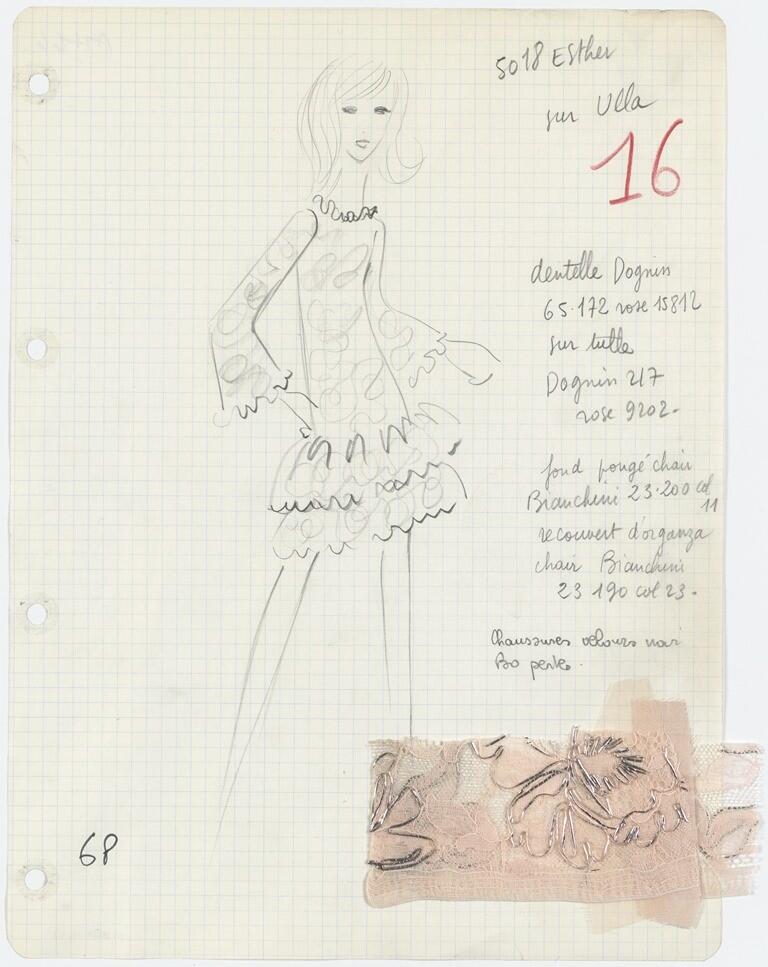 5018 Esther
sur Ulla
16
dentelle Dognin
65.172 rose 15812
sur tulle
Dognin 217
rose 9202-
fond pongé chair
Bianchini 23.200 col
11
recouvert d'organza
chair Bianchini
23 190 col 23-
Chaussures velours noir
Bo perle.
68